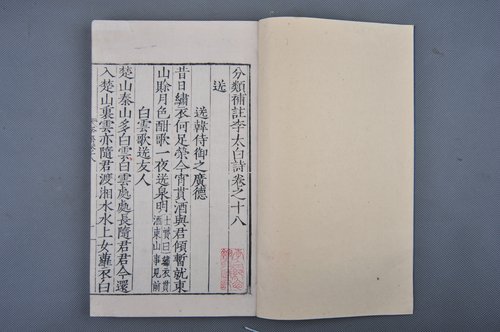 分類補註李太白詩卷之十八
送
送韓侍御之廣德
昔日繡衣何足榮今宵貰酒與君傾暫就東
山賖月色酣歌一夜送泉明士贇曰繡衣貰酒東山事見前
白雲歌送友人
楚山秦山多白雲白雲處處長隨君君今還
入楚山裏雲亦隨君渡湘水水上女蘿衣白